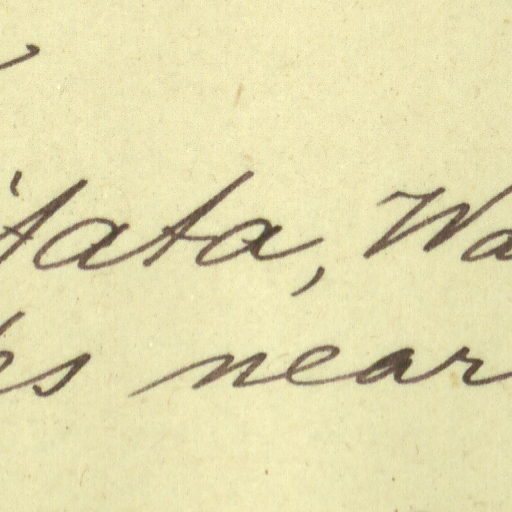 tata, Wa
s near